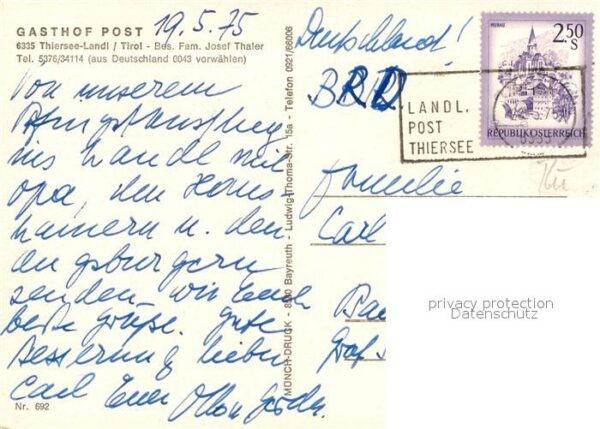 GASTHOF POST 19.5.75
6335 Thiersee-Landl / Tirol - Bes. Fam. Josef Thaler
Tel. 5376/34114 (aus Deutschland 0043 vorwählen)
Von unserem
Pfingstausflug
ins Landl mit
Opa, den
u. den
Augsburgern
senden wir Euch
beste Grüße. Gute
Besserung lieber
Carl Euer
Nr. 692
MÜNCH-DRUCK - 8580 Bayreuth - Ludwig-Thoma-Str. 15a - Telefon 0921/66006
Deutschland!
BRD
MURAU
2.50
S
REPUBLIK ÖSTERREICH
LANDL.
POST
THIERSEE
6335
Familie
Carl
privacy protection
Datenschutz